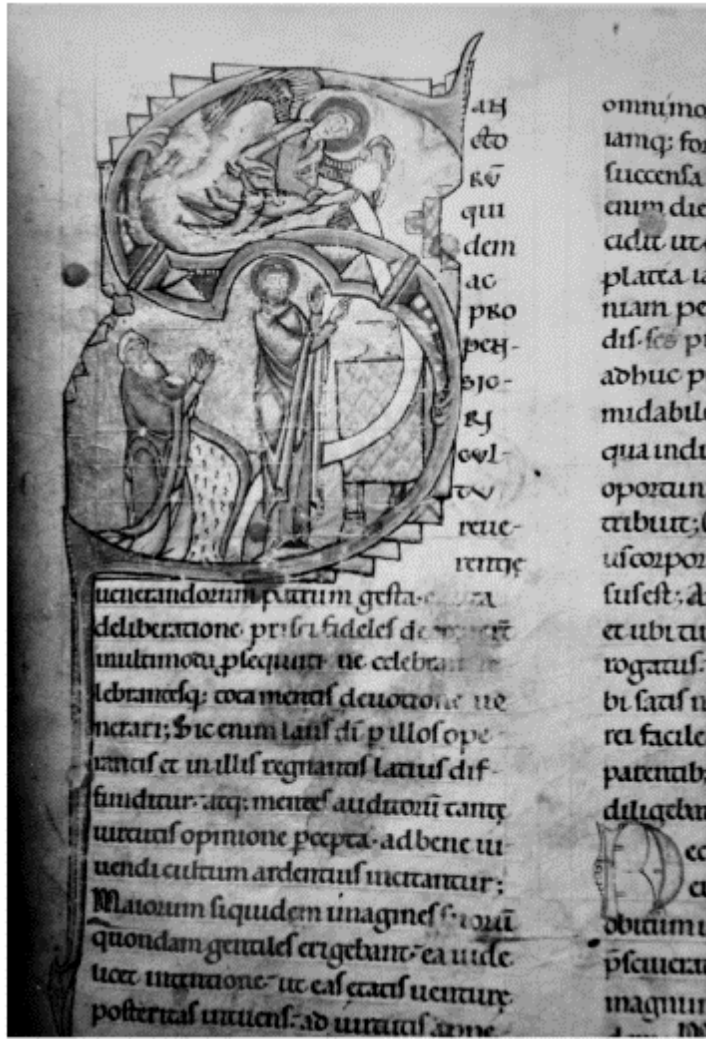 an
cto
rū
qui
dem
ac
pro
pen-
sio-
ri
cul-
tu
reue-
rentię
uenerandorum patrum gesta
deliberatione prisci fideles
multimodis ne
tota mentis deuotione ue
nerari; Sic enim laus di p illos ope
rantis et in illis regnantis latius dif-
funditur. atq; mentes auditorū tantę
uirtutis opinione pcepta. ad bene ui
uendi cultum ardentius incitantur;
Maiorum siquidem imagines
quondam gentiles erigebant. ea uide
licet intentione. ut eas etatis uenturę
posteritas intuens. ad uirtutis
omnimo
iamq; for
succensa
enim die
cidit ut
platea ia
niam pe
dis
adhuc p
midabile
qua indu
oportun
tribuit;
uscorpor
sus est;
et ubi tu
rogatus.
bi satis
rei facile
parentib;
diligeban
D ec
obitum
psciuera
magnum